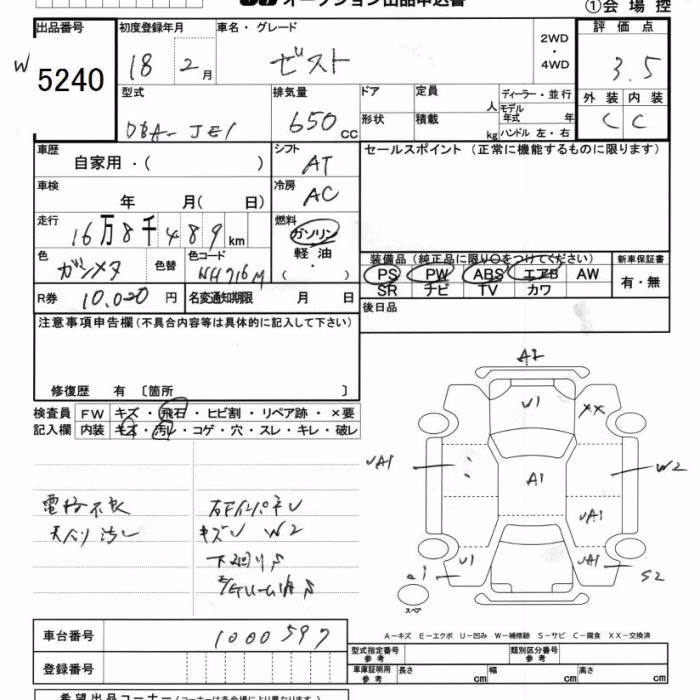 オークション出品申込書
①会場控
出品番号 5240
W
初度登録年月 18 2月
車名・グレード ゼスト
2WD・4WD
評価点 3.5
外装 内装
C C
型式 DBA-JE1
排気量 650cc
ドア
形状
定員 人
積載 kg
ディーラー・並行
モデル年式 年
ハンドル 左・右
車歴 自家用・( )
シフト AT
セールスポイント(正常に機能するものに限ります)
車検 年 月( 日)
冷房 AC
走行 16万8千489km
燃料 ガソリン
軽油
( ・ )
色 ガンメタ 色替
色コード NH716M
装備品(純正品に限り○をつけてください)
新車保証書
PS PW ABS エアB AW
SR ナビ TV カワ
有・無
R券 10,020円
名変通知期限 月 日
後日品
注意事項申告欄(不具合内容等は具体的に記入して下さい)
修復歴 有〔箇所 〕
検査員 FW キズ・飛石・ヒビ割・リペア跡・×要
記入欄 内装 キズ・汚レ・コゲ・穴・スレ・キレ・破レ
A2
U1
XX
UA1
A1
W2
UA1
U1
UA1
S2
スペア
電格不良
天バリ汚レ
キズU W2
下廻りS
A-キズ E-エクボ U-凹み W-補修跡 S-サビ C-腐食 XX-交換済
車台番号 1000597
型式指定番号 参考
類別区分番号 参考
登録番号
車庫証明用 参考 長さ cm 幅 cm 高さ cm
希望出品コーナー(コーナーは各会場により異なります)